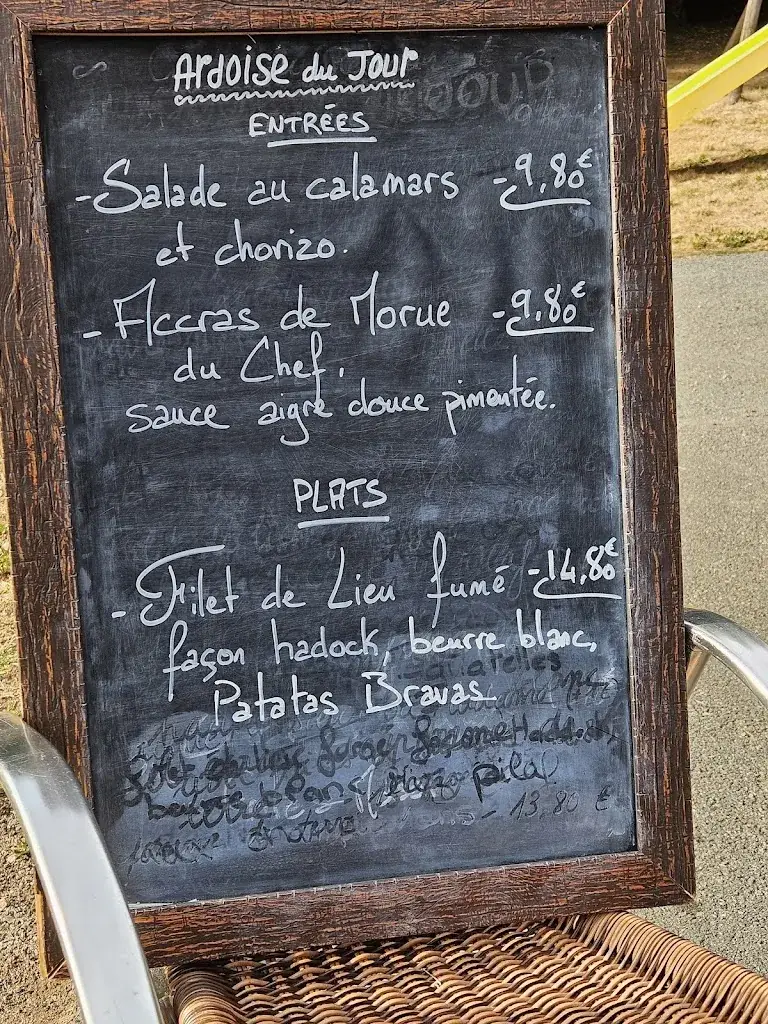 Ardoise du Jour
ENTRÉES
- Salade au calamars - 9,80€
et chorizo.
- Accras de Morue - 9,80€
du Chef,
sauce aigre douce pimentée.
PLATS
- Filet de Lieu fumé - 14,80€
façon hadock, beurre blanc,
Patatas Bravas
pilaf
13,80 €